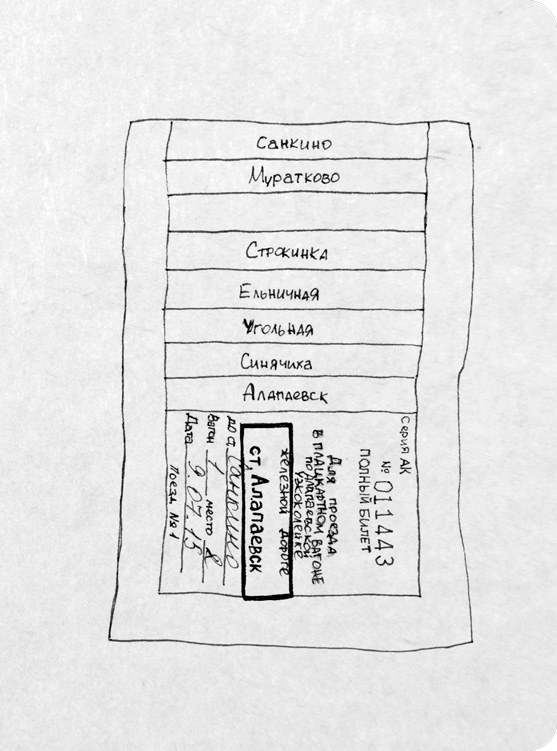 Санкино
Муратково
Строкинка
Ельничная
Угольная
Синячиха
Алапаевск
Серия АК
№ 011443
ПОЛНЫЙ БИЛЕТ
Для проезда
В ПЛАЦКАРТНОМ ВАГОНЕ
по Алапаевской
узкоколейке
железной дороге
ст. Алапаевск
до ст. Санкино
Вагон 1 место 8
Дата 9.07.15
Поезд № 1